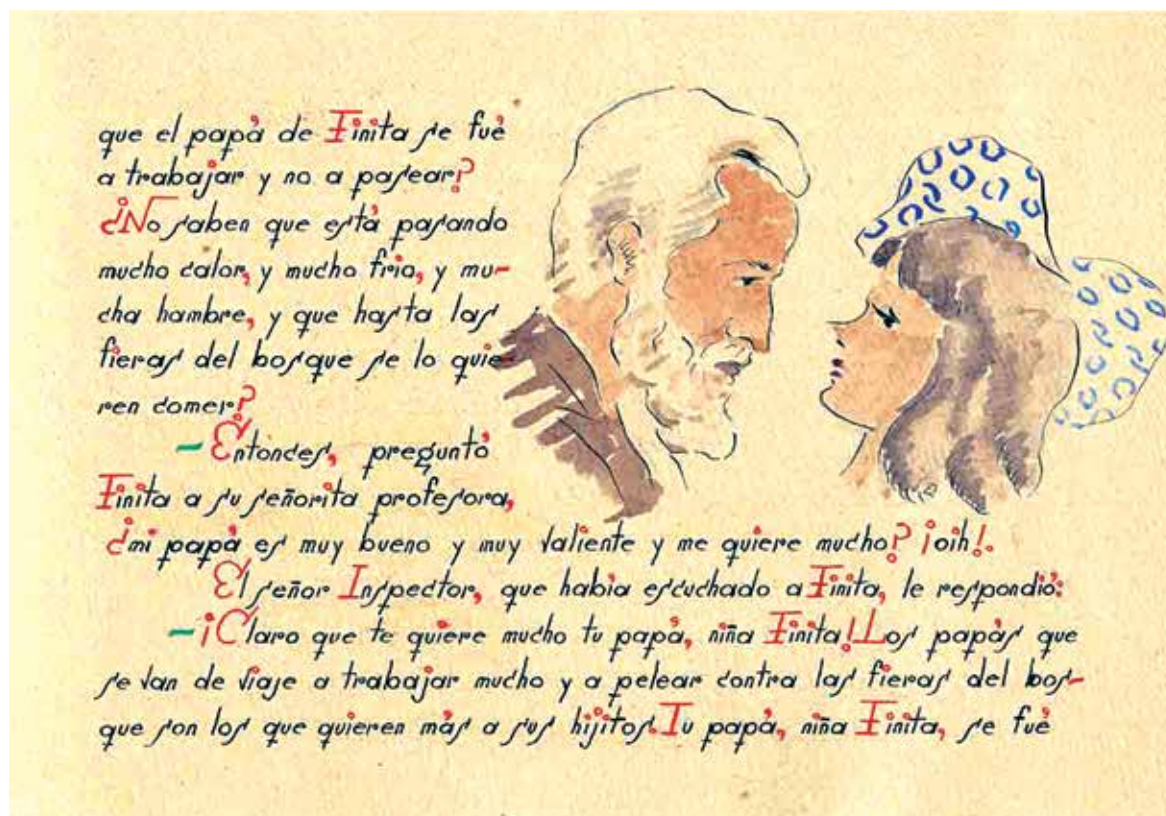 que el papá de Finita se fué
a trabajar y no a pasear?
¿No saben que está pasando
mucho calor, y mucho frio, y mu-
cha hambre, y que hasta las
fieras del bosque se lo quie-
ren comer?
—Entonces, preguntó
Finita a su señorita profesora,
¿mi papá es muy bueno y muy valiente y me quiere mucho? ¡oih!.
El señor Inspector, que había escuchado a Finita, le respondió:
—¡Claro que te quiere mucho tu papá, niña Finita! Los papás que
se van de viaje a trabajar mucho y a pelear contra las fieras del bos-
que son los que quieren más a sus hijitos. Tu papá, niña Finita, se fué